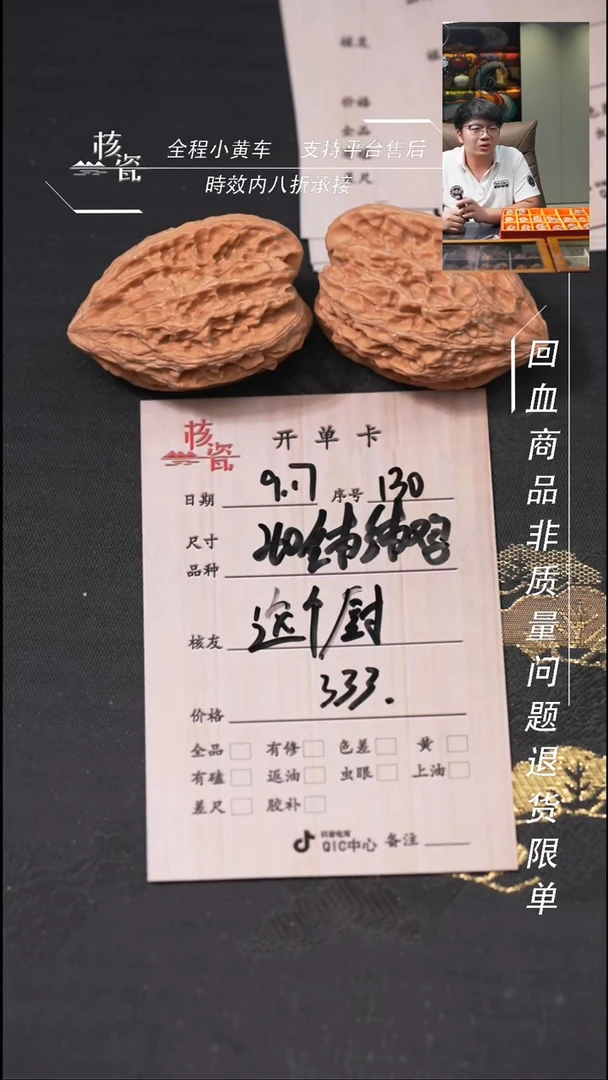 核瓷
全程小黄车 支持平台售后
時效内八折承接
回血商品非质量问题退货限单
核瓷
开单卡
日期 9.17 序号 130
尺寸
品种
核友 这个厨
价格 333.
全品 有修 色差 黄
有磕 返油 虫眼 上油
差尺 胶补
抖音电商
QIC中心 备注